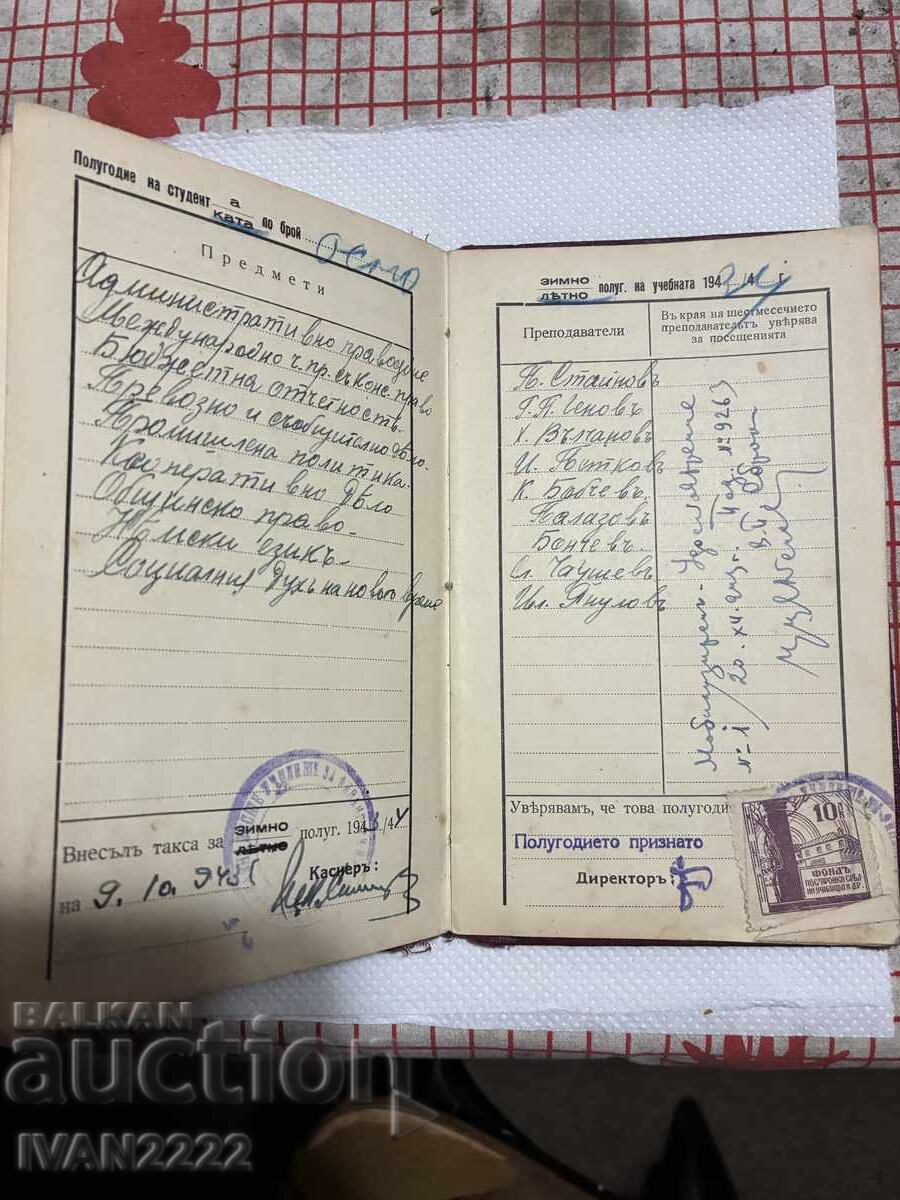 Полугодие на студент а/ката по брой осмо
Предмети
Административно правосѫдие
Международно ч. пр. съ Конс. право
Бюджетна отчетность.
Превозно и съобщително дѣло.
Промишлена политика.
Кооперативно дѣло
Общинско право.
Нѣмски езикъ.
Социалния духъ на новото време
Внесълъ такса за зимно/лѣтно полуг. 1943/44
на 9.10.943
Касиеръ:
зимно/лѣтно полуг. на учебната 194 /4 г.
Преподаватели
Въ края на шестмесечието
преподавательтъ увѣрява
за посещенията
П. Стаиновъ
Г. П. Геновъ
Х. Вълчановъ
И. Петковъ
К. Бобчевъ
Палазовъ
Бончевъ
Сл. Чаушевъ
Ил. Янулов
Мобилизиранъ - Удостоверение
№ 1 / 20. XII. 943 № 9263
Увѣрявамъ, че това полугодие
Полугодието признато
Директоръ:
10
ФОНДЪ
BALKAN
auction
IVAN2222